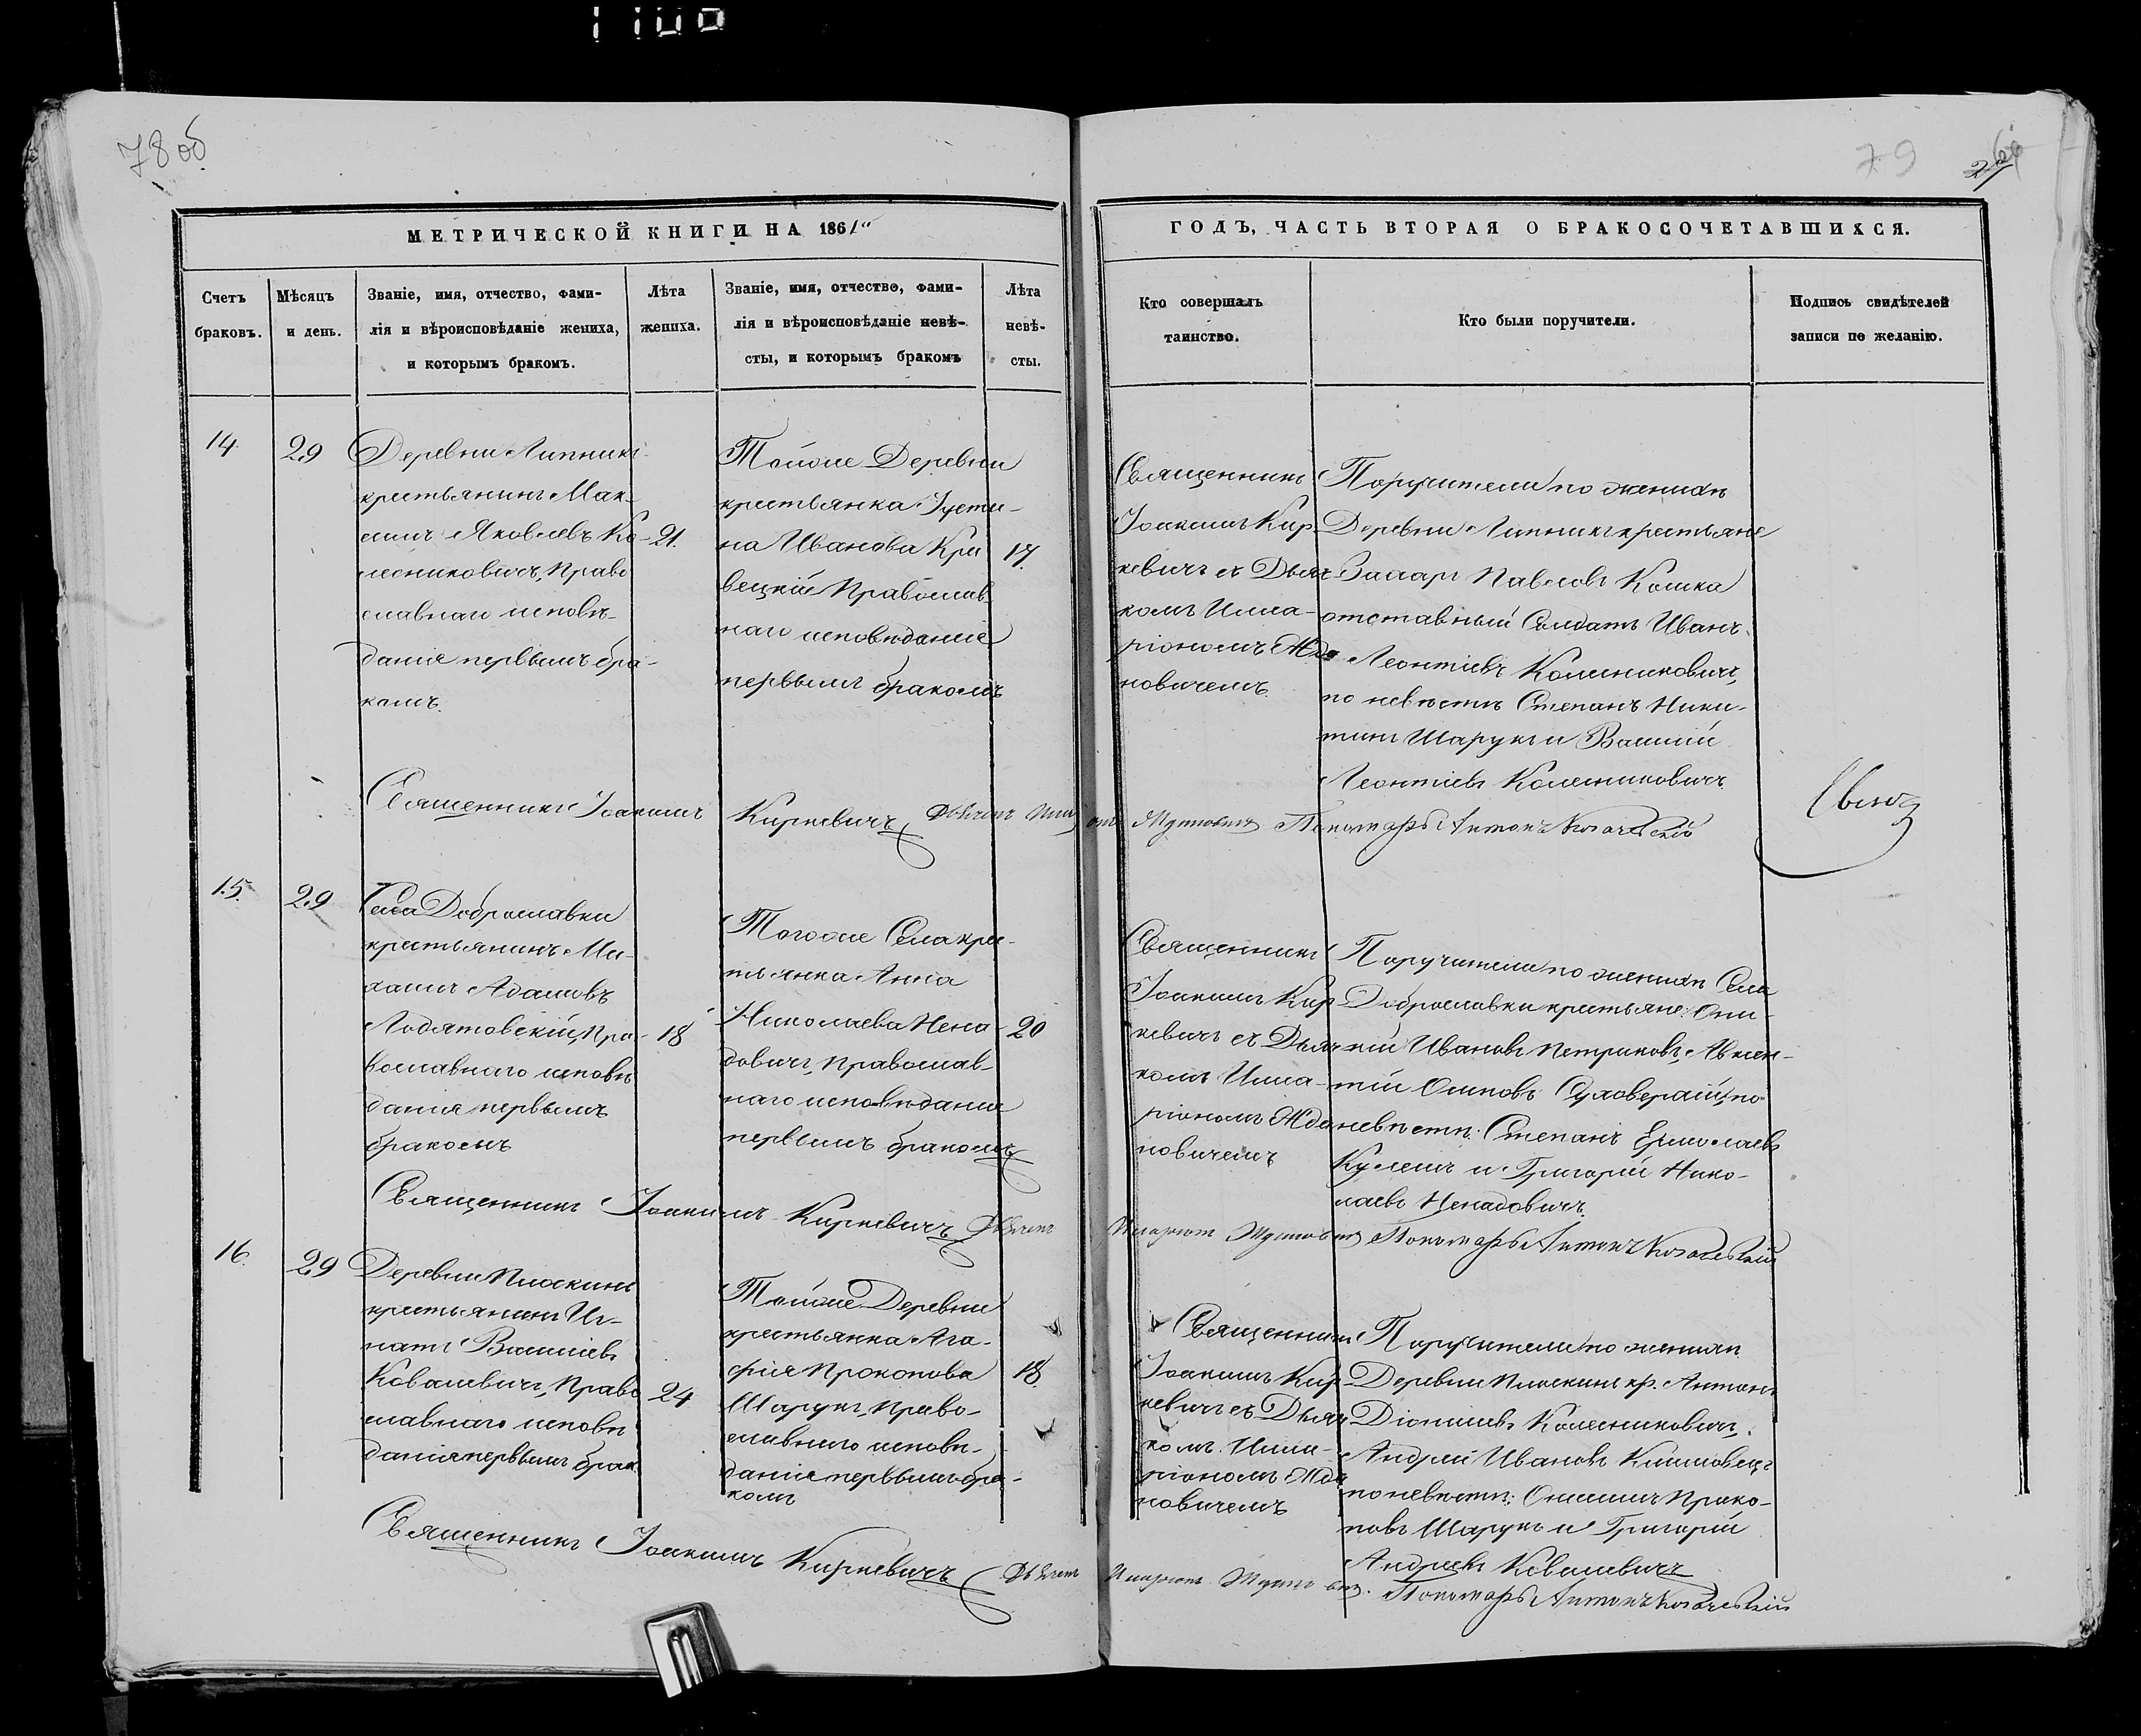 78 об
79
МЕТРИЧЕСКОЙ КНИГИ НА 1861
ГОДЪ, ЧАСТЬ ВТОРАЯ О БРАКОСОЧЕТАВШИХСЯ.
Счетъ
браковъ.
Мѣсяцъ
и день.
Званіе, имя, отчество, фами-
лія и вѣроисповѣданіе жениха,
и которымъ бракомъ.
Лѣта
жениха.
Званіе, имя, отчество, фами-
лія и вѣроисповѣданіе невѣ-
сты, и которымъ бракомъ
Лѣта
невѣ-
сты.
Кто совершалъ
таинство.
Кто были поручители.
Подпись свидѣтелей
записи по желанію.
14
29
Деревни Липникъ
крестьянинъ Мак-
симъ Яковлевъ Ко-
лесниковичъ, Право
славнаго исповѣ-
данія первымъ бра-
комъ.
21.
Тойже Деревни
крестьянка Іусти-
на Иванова Кри
вецкій Православ-
наго исповѣданіе
первымъ бракомъ
17.
Священникъ
Іоакимъ Кир-
кевичъ съ Дьяч
комъ Илла-
ріономъ Жда
новичемъ.
Поручители по женихѣ
Деревни Липникъ крестьяне
Захаръ Павловъ Кошка
отставный Солдатъ Иванъ
Леонтіевъ Колесниковичъ,
по невѣстѣ Степанъ Ники-
тинъ Шарукъ и Василій
Леонтіевъ Колесниковичъ.
Священникъ Іоакимъ Киркевичъ Дьячекъ Ждановичъ Пономарь Антонъ
15.
29
Села Доброславки
крестьянинъ Ми-
хаилъ Адамовъ
Лодятовскій, Пра-
вославнаго исповѣ
данія первымъ
бракомъ
18
Тогоже Села кре-
стьянка Анна
Николаева Нена-
довичъ, Православ-
наго исповѣданія
первымъ бракомъ
20
Священникъ
Іоакимъ Кир
кевичъ съ Дьяч
комъ Илла-
ріономъ Жда
новичемъ
Поручители по женихѣ Села
Доброславки крестьяне: Они-
кій Ивановъ Петриковъ, Авксен-
тій Осиповъ по
невѣстѣ: Степанъ Ермолаевъ
Кулешъ и Григорій Нико-
лаевъ Ненадовичъ.
Священникъ Іоакимъ Киркевичъ Дьячекъ Иларіонъ Ждановичъ Пономарь Антонъ
16.
29
Деревни Плоскинь
крестьянинъ Иг-
натъ Василіевъ
Ковалевичъ, Право
славнаго исповѣ
данія первымъ брак.
24
Тойже Деревни
крестьянка Ага-
фія Прокопова
Шарукъ, Право-
славнаго исповѣ-
данія первымъ бра-
комъ
18.
Священникъ
Іоакимъ Кир
кевичъ съ Дьяч
комъ Илла-
ріономъ Жда
новичемъ
Поручители по женихѣ
Деревни Плоскинь кр. Антонъ
Діонисіевъ Колесниковичъ,
Андрей Ивановъ Климовецъ
по невѣстѣ: Онисимъ Проко-
повъ Шарукъ и Григорій
Андреевъ Ковалевичъ
Священникъ Іоакимъ Киркевичъ Дьячекъ Иларіонъ Ждановичъ. Пономарь Антонъ